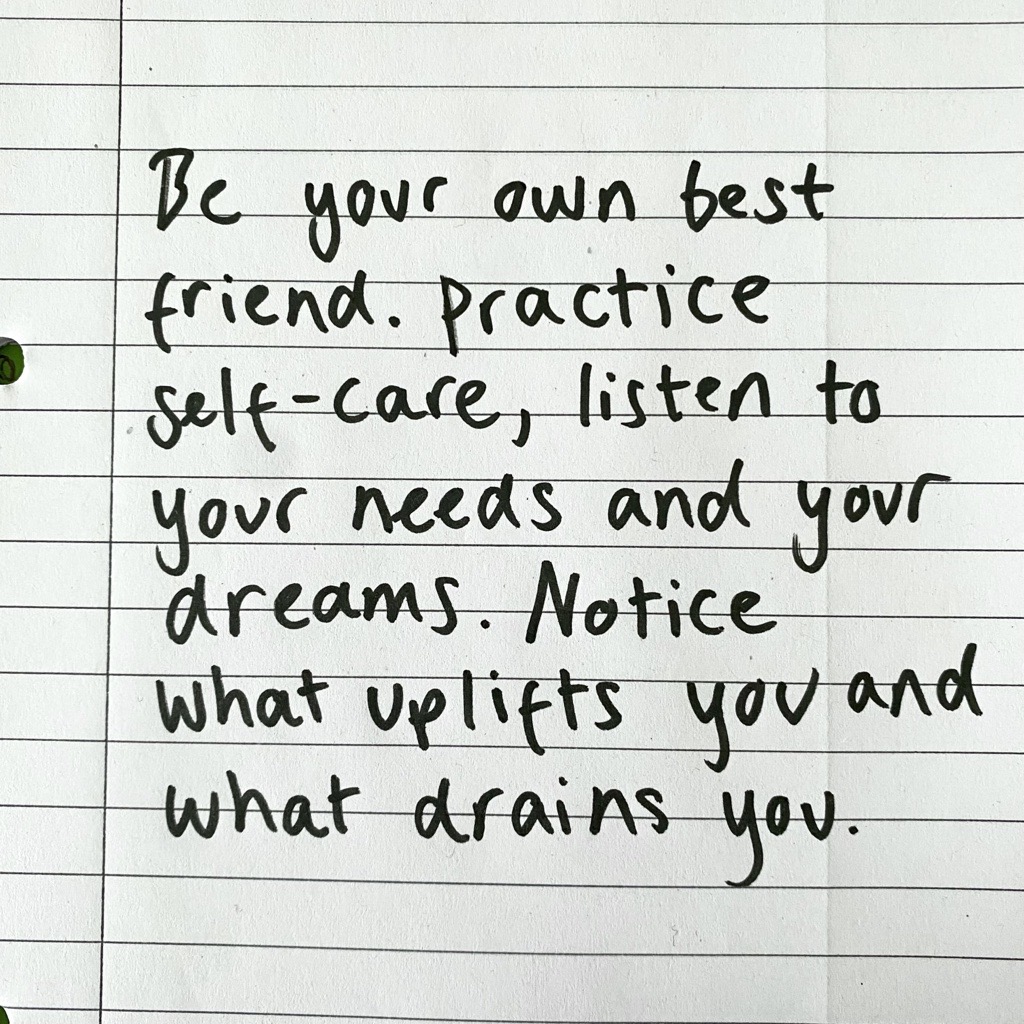 Be your own best
friend. practice
self-care, listen to
your needs and your
dreams. Notice
what uplifts you and
what drains you.